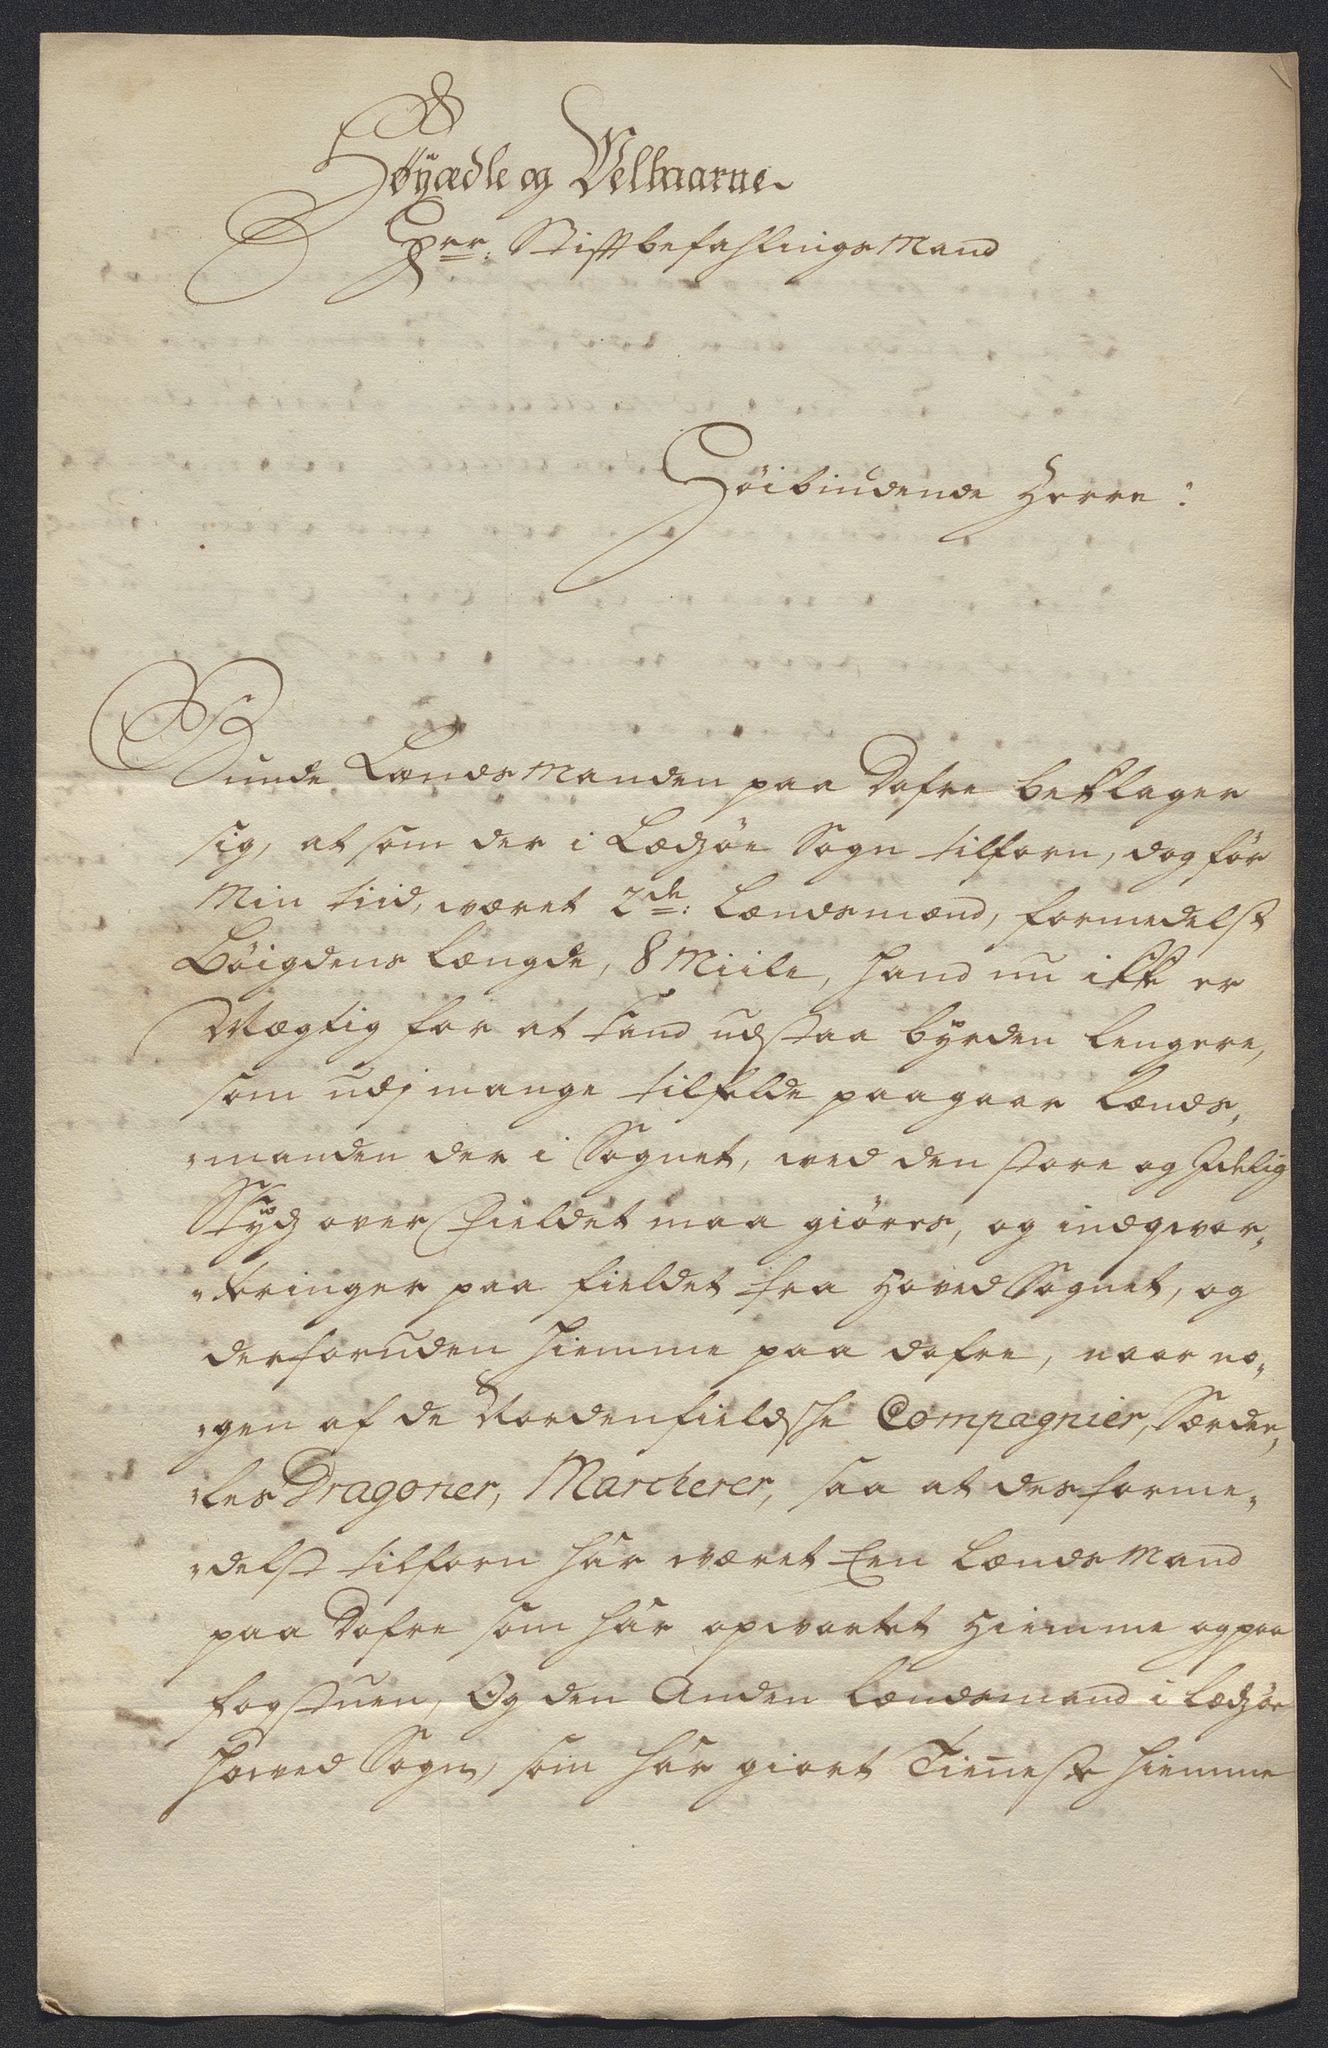 Høyædle og Velbaarne
Hrr: Stiftbefahlings Mand
Høibiudende Herre:
Lænds Manden paa Dofre beklager
sig, at som der i Ledzøe Sogn tilforn, dog før
Min tiid, været 2de: Lændsmænd, formedelst
Bøigdens Længde, 8 Miile, hand nu ikke er
Mægtig for at kand udstaa byrden lengere,
som udj mange tilfelde paagaar Lænds„
„manden der i Sognet, ved den store og Idelig
Skydz over Fieldet maa giøres, og indqvar„
„teringer paa fieldet fra Hoved Sognet, og
derforuden hiemme paa dofre, naar no„
„gen af de Nordenfieldske Compagnier, Særde„
„les Dragoner, Marcherer, saa at desforme„
„delst tilforn har været Een Lænds Mand
paa Dofre som har opvartet Hiemme og paa
Fogstuen, Og den Anden Lændsmand i Ledzøe
Hoved Sogn, som har giort Tieneste hiemme